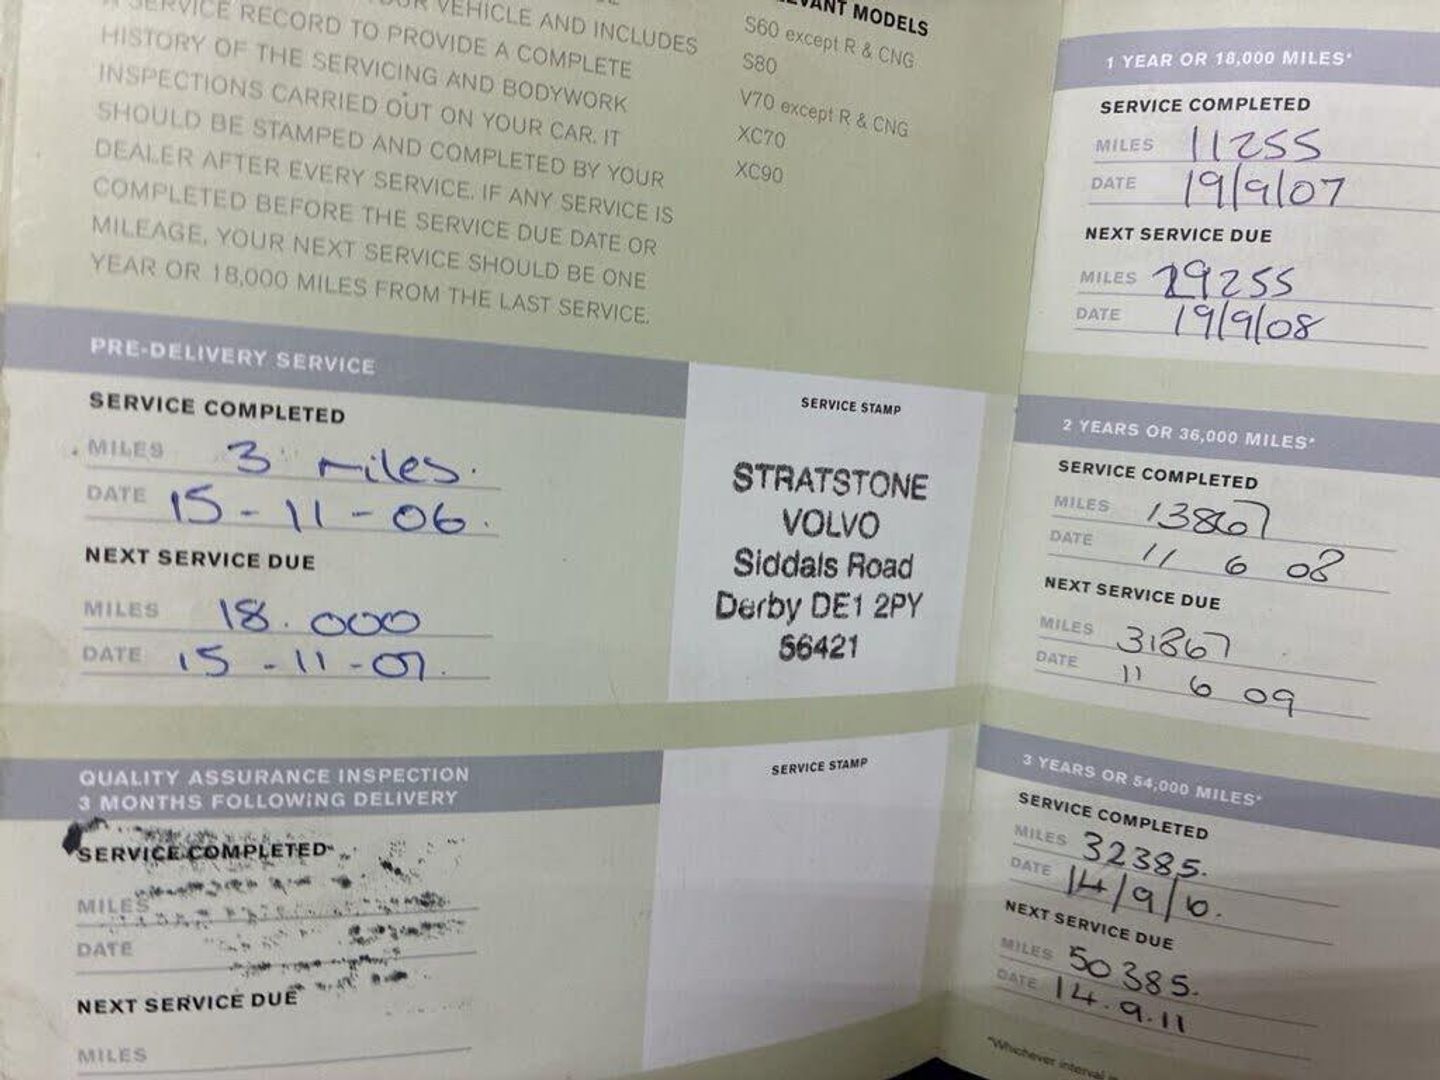 VEHICLE AND INCLUDES
A SERVICE RECORD TO PROVIDE A COMPLETE
HISTORY OF THE SERVICING AND BODYWORK
INSPECTIONS CARRIED OUT ON YOUR CAR. IT
SHOULD BE STAMPED AND COMPLETED BY YOUR
DEALER AFTER EVERY SERVICE. IF ANY SERVICE IS
COMPLETED BEFORE THE SERVICE DUE DATE OR
MILEAGE, YOUR NEXT SERVICE SHOULD BE ONE
YEAR OR 18,000 MILES FROM THE LAST SERVICE.
MODELS
S60 except R & CNG
S80
V70 except R & CNG
XC70
XC90
PRE-DELIVERY SERVICE
SERVICE COMPLETED
MILES 3 miles.
DATE 15-11-06.
NEXT SERVICE DUE
MILES 18.000
DATE 15-11-07.
SERVICE STAMP
STRATSTONE
VOLVO
Siddals Road
Derby DE1 2PY
56421
QUALITY ASSURANCE INSPECTION
3 MONTHS FOLLOWING DELIVERY
SERVICE COMPLETED
MILES
DATE
NEXT SERVICE DUE
MILES
SERVICE STAMP
1 YEAR OR 18,000 MILES*
SERVICE COMPLETED
MILES 11255
DATE 19/9/07
NEXT SERVICE DUE
MILES 29255
DATE 19/9/08
2 YEARS OR 36,000 MILES*
SERVICE COMPLETED
MILES 13867
DATE 11 6 08
NEXT SERVICE DUE
MILES 31867
DATE 11 6 09
3 YEARS OR 54,000 MILES*
SERVICE COMPLETED
MILES 32385.
DATE 14/9/10.
NEXT SERVICE DUE
MILES 50385.
DATE 14.9.11
*Whichever interval